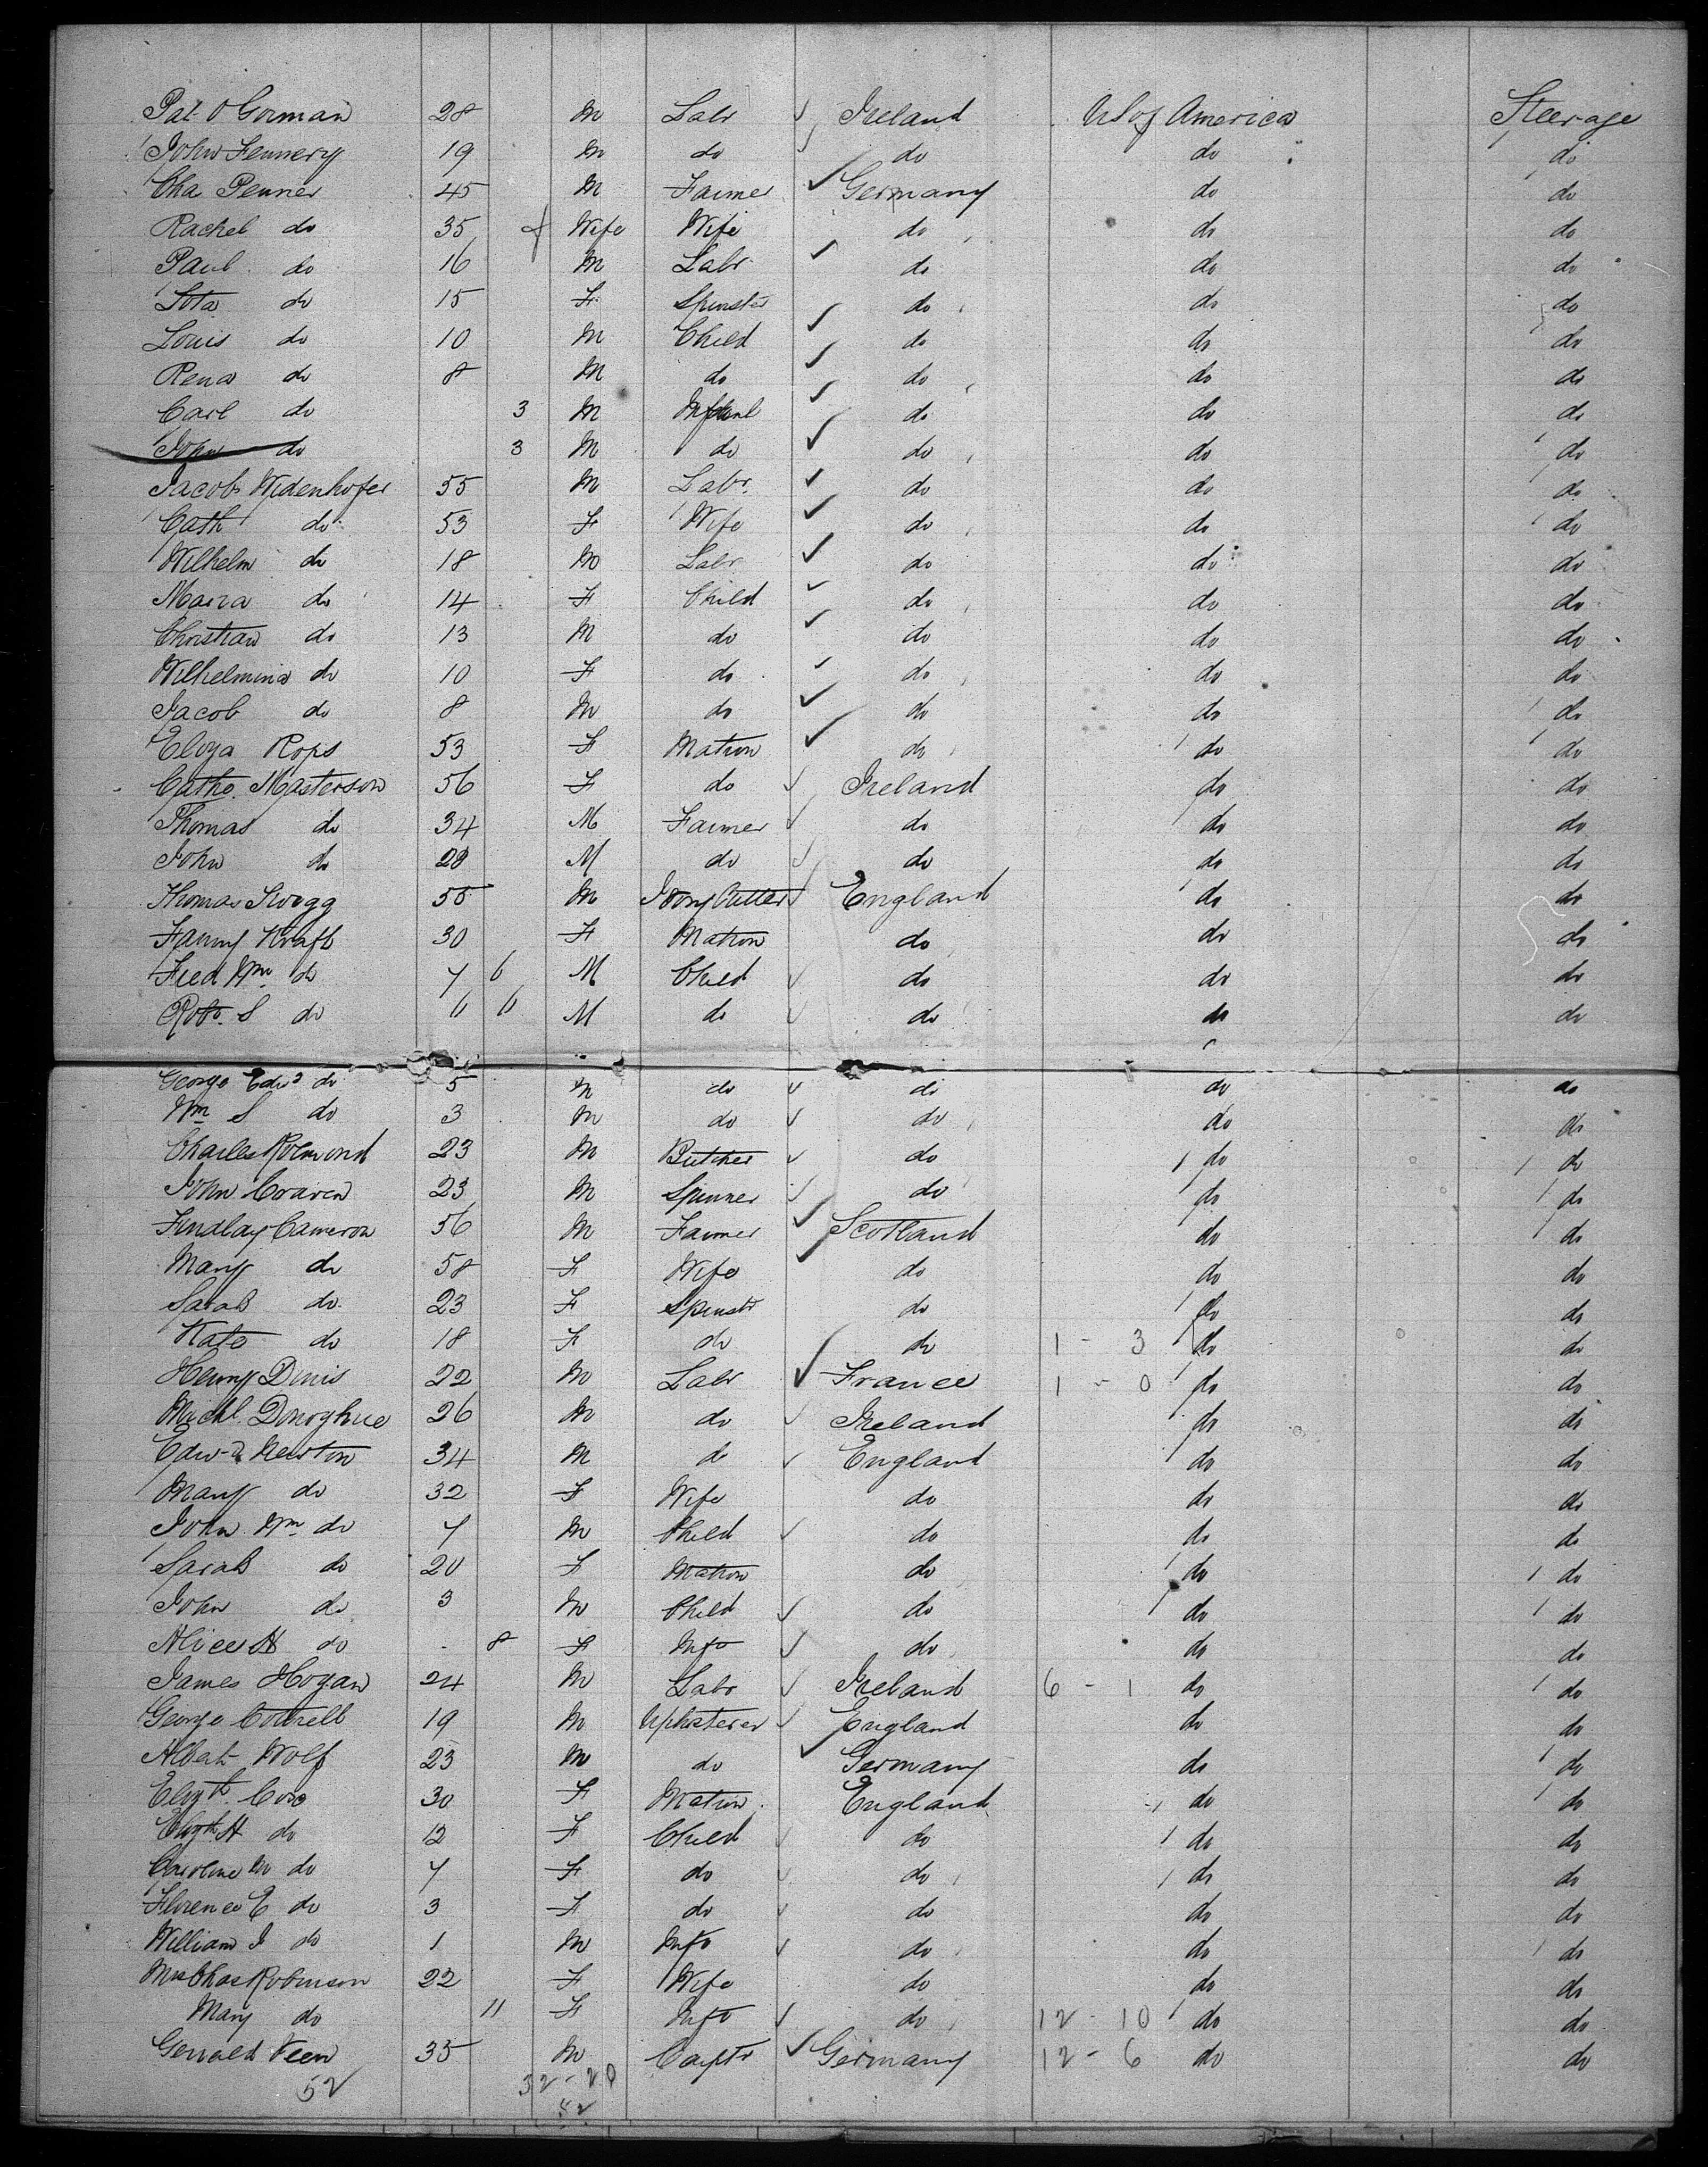 Pat O Gorman 28 M Labr Ireland US of America Steerage
John Fennery 19 M do do do do
Cha Penner 45 M Farmer Germany do do
Rachel do 35 Wife Wife do do do
Paul do 16 M Labr do do do
Lota do 15 F Spinster do do do
Louis do 10 M Child do do do
Rena do 8 M do do do do
Carl do 3 M Infant do do do
John do 3 M do do do do
Jacob Widenhofer 55 M Labr. do do do
Cath do 53 F Wife do do do
Wilhelm do 18 M Labr do do do
Maria do 14 F Child do do do
Christian do 13 M do do do do
Wilhelmina do 10 F do do do do
Jacob do 8 M do do do do
Eliza Rops 53 F Matron do do do
Cathe. Masterson 56 F do Ireland do do
Thomas do 34 M Farmer do do do
John do 28 M do do do do
Thomas 55 M Ivory Cutter England do do
Fanny Kraft 30 F Matron do do do
Fred Wm do 7 6 M Child do do do
Robt. S do 6 6 M do do do do
George Edwd do 5 M do do do do
Wm S do 3 M do do do do
Charles 23 M Butcher do do do
John Craven 23 M Spinner do do do
Findlay Cameron 56 M Farmer Scotland do do
Mary do 58 F Wife do do do
Sarah do 23 F Spinstr do do do
Kate do 18 F do do 1 - 3 do do
Henry Denis 22 M Labr France 1 - 0 do do
Michl. Donoghue 26 M do Ireland do do
Edwd Newton 34 M do England do do
Mary do 32 F Wife do do do
John Wm do 7 M Child do do do
Sarah do 20 F Matron do do do
John do 3 M Child do do do
Alice H do 8 F Inft do do do
James Hogan 24 M Labr Ireland 6 - 1 do do
George Cottrell 19 M Upholsterer England do do
Albert Wolf 23 M do Germany do do
Elizth Cox 30 F Matron England do do
Elizth H do 12 F Child do do do
Caroline M do 7 F do do do do
Florence E do 3 F do do do do
William J do 1 M Inft do do do
Mrs Chas Robinson 22 F Wife do do do
Mary do 11 F Inft do 12 - 10 do do
Gerrald Veen 35 M Carptr Germany 12 - 6 do do
52 32 - 20
52